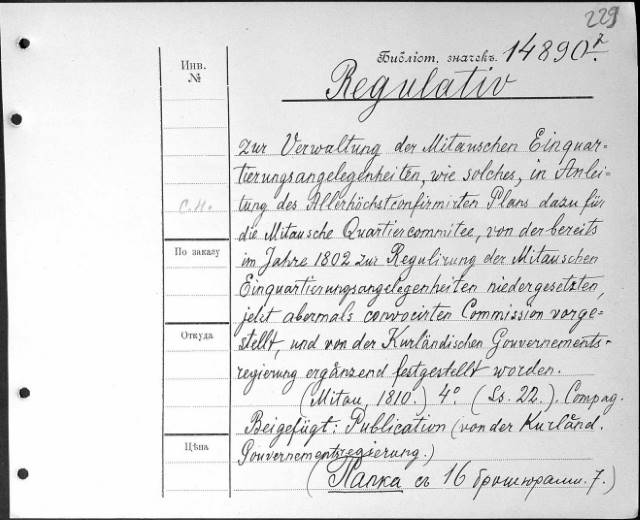 229
Инв.
№
Библіот. значекъ. 14890 7.
Regulativ
zur Verwaltung der Mitauschen Einquar=
tierungsangelegenheiten, wie solches, in Anlei=
С.Н.
tung des Allerhöchstconfirmirten Plans dazu für
die Mitausche Quartiercommitee, von der bereits
По заказу
im Jahre 1802 zur Regulirung der Mitauschen
Einquartierungsangelegenheiten niedergesetzten,
jetzt abermals convocirten Commission vorge=
Откуда
stellt, und von der Kurländischen Gouvernements=
regierung ergänzend festgestellt worden.
(Mitau, 1810.) 4° (Ss. 22.). Compag.
Beigefügt: Publication (von der Kurländ.
Цѣна
Gouvernementsregierung.)
(Папка съ 16 брошюрами. 7.)